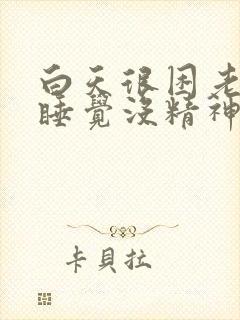 白天很困老
睡覺沒精神
卡貝拉